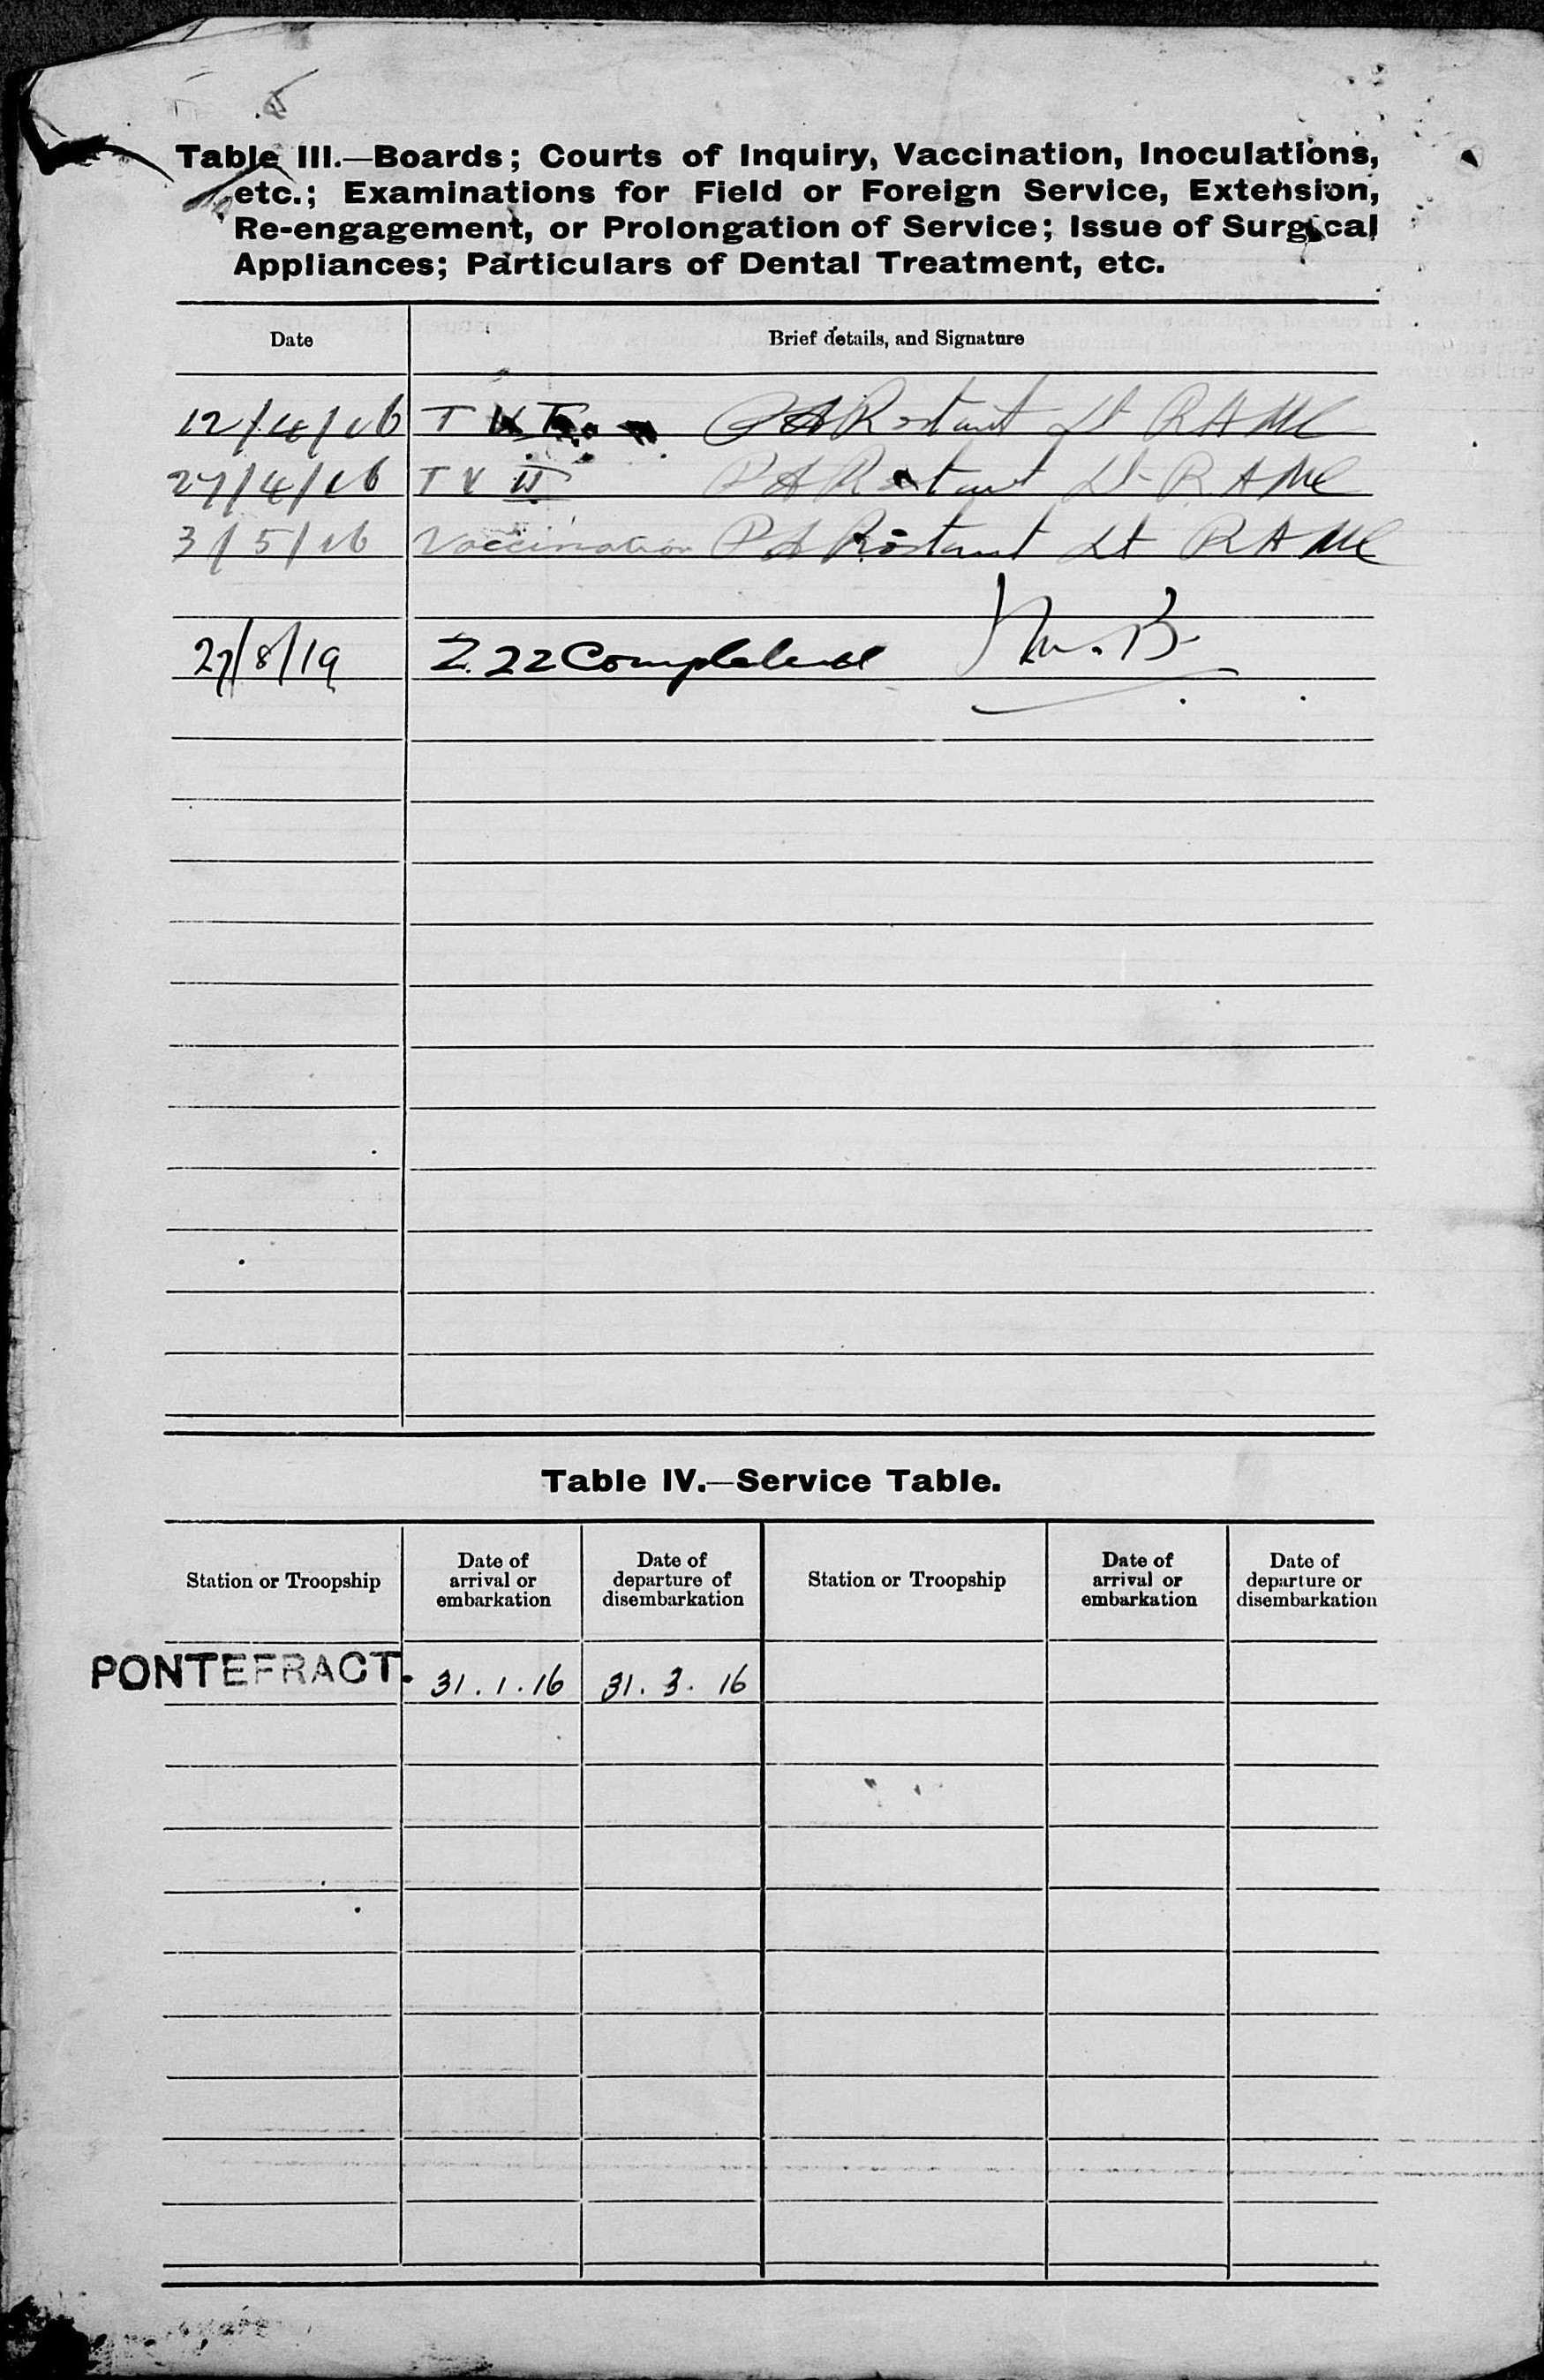 Table III.—Boards; Courts of Inquiry, Vaccination, Inoculations,
etc.; Examinations for Field or Foreign Service, Extension,
Re-engagement, or Prolongation of Service; Issue of Surgical
Appliances; Particulars of Dental Treatment, etc.
Date Brief details, and Signature
12/4/16 T V I P A Rostant Lt RAMC
27/4/16 T V II P A Rostant Lt RAMC
3/5/16 Vaccination P A Rostant Lt RAMC
27/8/19 Z.22 Completed
Table IV.—Service Table.
Station or Troopship Date of arrival or embarkation Date of departure of disembarkation Station or Troopship Date of arrival or embarkation Date of departure or disembarkation
PONTEFRACT. 31.1.16 31.3.16